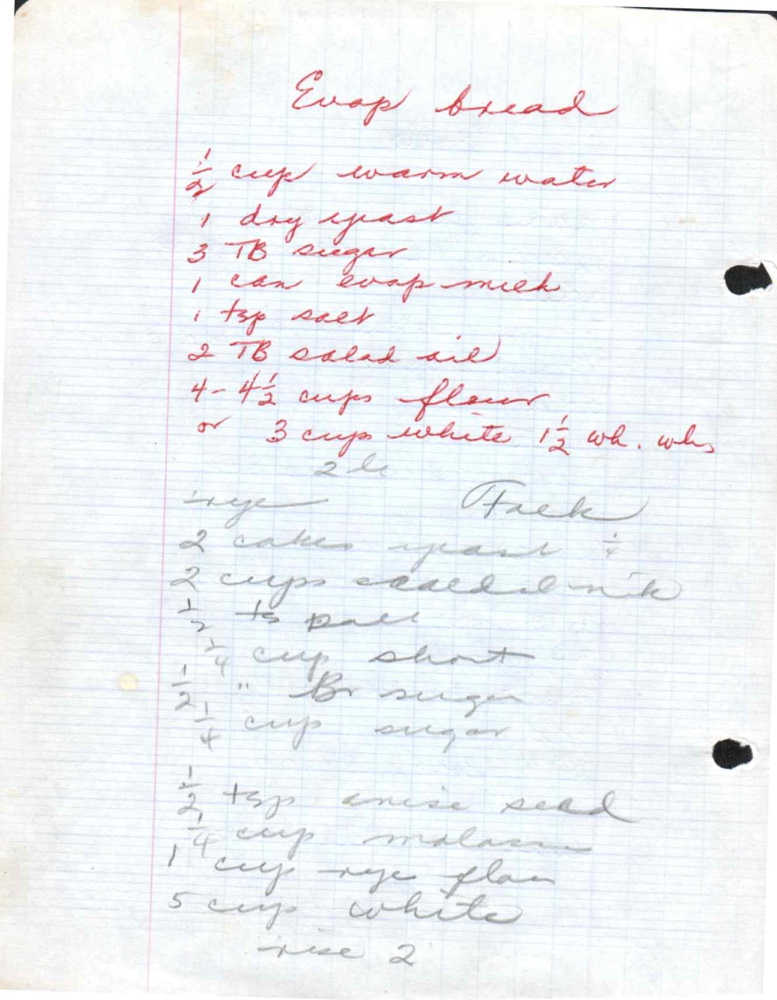 Evap bread
1/2 cup warm water
1 dry yeast
3 TB sugar
1 can evap milk
1 tsp salt
2 TB salad oil
4-4 1/2 cups flour
or 3 cup white 1 1/2 wh. wh
2
rye
2 cakes yeast 1/4
2 cups scalded milk
1/2 ts salt
1/4 cup short
1/2 " Br sugar
1/4 cup sugar
1/2 tsp anise seed
1/4 cup molasses
1 cup rye flou
5 cup white
rise 2